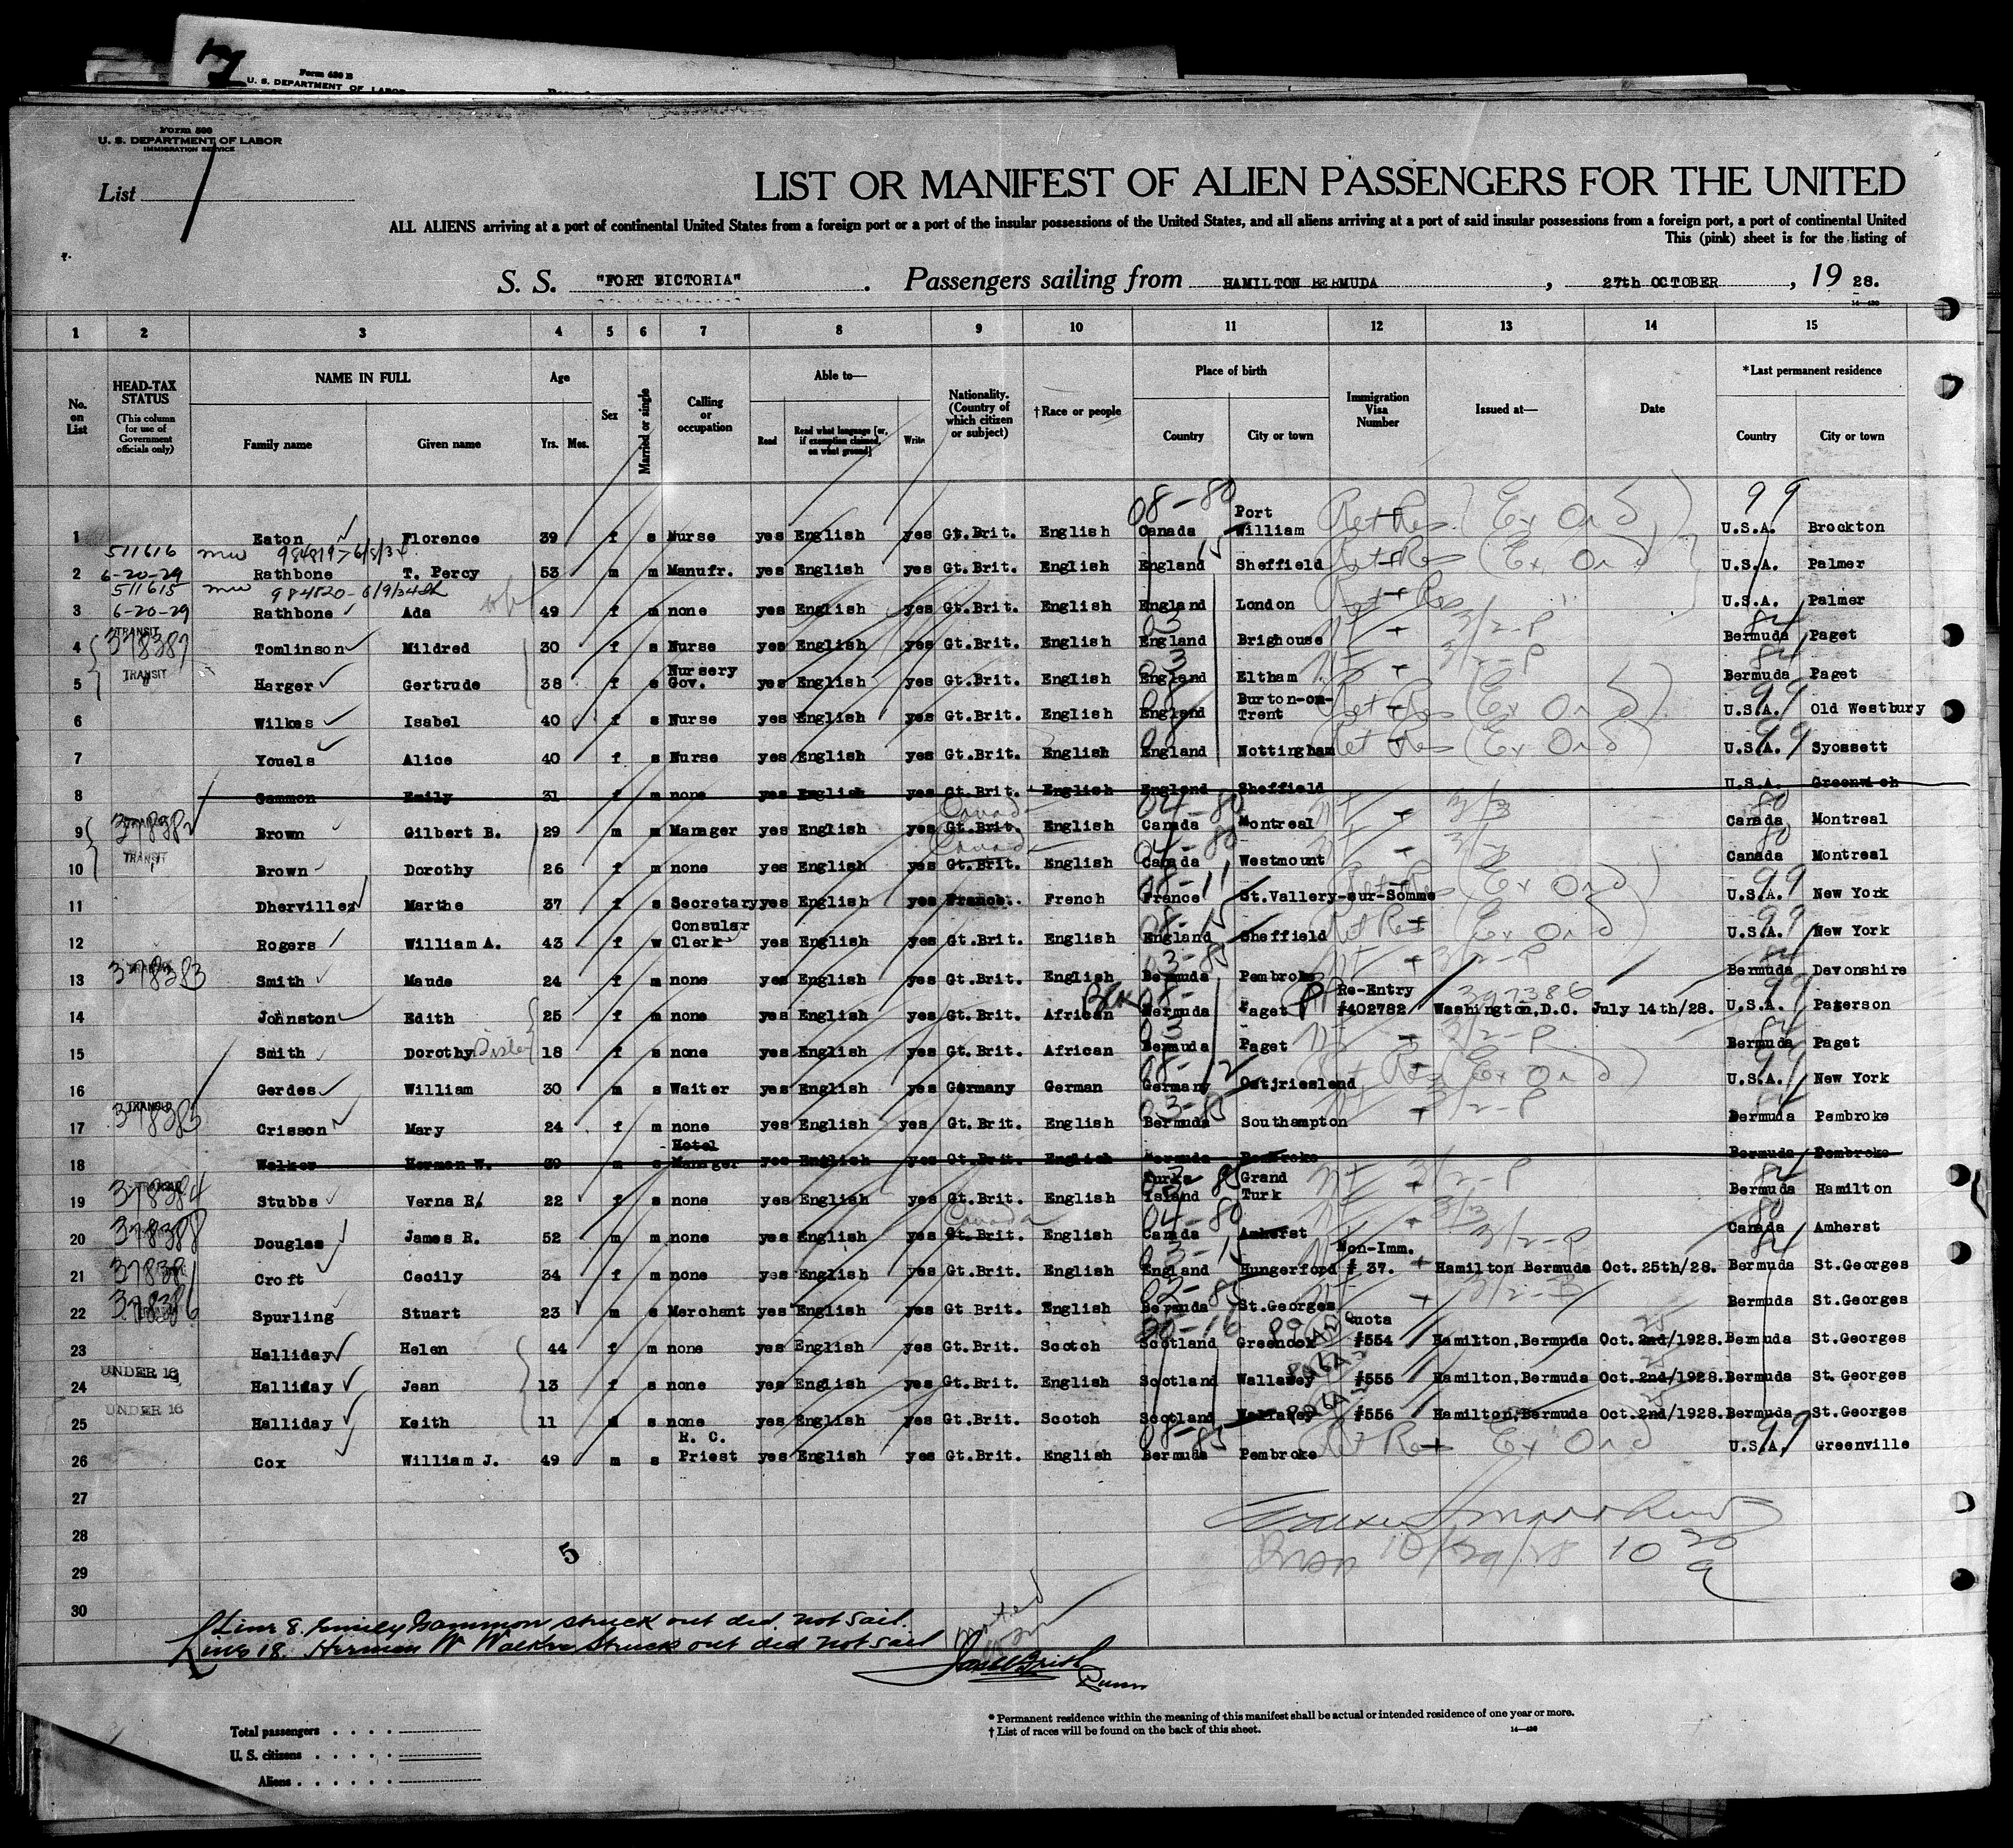 Form 630 B
U. S. DEPARTMENT OF LABOR
Form 500
U. S. DEPARTMENT OF LABOR
IMMIGRATION SERVICE
List 1
LIST OR MANIFEST OF ALIEN PASSENGERS FOR THE UNITED
ALL ALIENS arriving at a port of continental United States from a foreign port or a port of the insular possessions of the United States, and all aliens arriving at a port of said insular possessions from a foreign port, a port of continental United
This (pink) sheet is for the listing of
S. S. "FORT BICTORIA". Passengers sailing from HAMILTON BERMUDA, 27th OCTOBER, 1928.
1 2 3 4 5 6 7 8 9 10 11 12 13 14 15
No. on List
HEAD-TAX STATUS (This column for use of Government officials only)
NAME IN FULL Family name Given name
Age Yrs. Mos.
Sex
Married or single
Calling or occupation
Able to— Read Read what language [or, if exemption claimed, on what ground] Write
Nationality. (Country of which citizen or subject)
†Race or people
Place of birth Country City or town
Immigration Visa Number
Issued at—
Date
*Last permanent residence Country City or town
1 Eaton Florence 39 f s Nurse yes English yes Gt.Brit. English 08-80 Canada Port William Ret Res (Ex Ord) 99 U.S.A. Brockton
511616 6-20-29
2 Rathbone T. Percy 53 m m Manufr. yes English yes Gt.Brit. English England Sheffield Ret Res (Ex Ord) U.S.A. Palmer
511615 6-20-29
3 Rathbone Ada 49 f m none yes English yes Gt.Brit. English England London Ret Res U.S.A. Palmer
4 TRANSIT 378387 Tomlinson Mildred 30 f s Nurse yes English yes Gt.Brit. English 03 England Brighouse 3/2-P 84 Bermuda Paget
5 TRANSIT Harger Gertrude 38 f s Nursery Gov. yes English yes Gt.Brit. English 03 England Eltham 3/2-P 84 Bermuda Paget
6 Wilkes Isabel 40 f s Nurse yes English yes Gt.Brit. English 08 England Burton-on-Trent Ret Res (Ex Ord) 99 U.S.A. Old Westbury
7 Youels Alice 40 f s Nurse yes English yes Gt.Brit. English England Nottingham Ret Res (Ex Ord) 99 U.S.A. Syossett
8 Gammon Emily 31 f m none yes English yes Gt.Brit. English England Sheffield U.S.A. Greenwich
9 378382 Brown Gilbert B. 29 m m Manager yes English yes Gt.Brit. Canad English 04-80 Canada Montreal 3/3 80 Canada Montreal
10 TRANSIT Brown Dorothy 26 f m none yes English yes Gt.Brit. Canad English 04-80 Canada Westmount 80 Canada Montreal
11 Dhervilles Marthe 37 f s Secretary yes English yes France. French 08-11 France St.Vallery-sur-Somme Ret Res (Ex Ord) 99 U.S.A. New York
12 Rogers William A. 43 f w Consular Clerk yes English yes Gt.Brit. English 08-15 England Sheffield Ret Res Ex Ord 99 U.S.A. New York
13 378383 Smith Maude 24 f m none yes English yes Gt.Brit. English 03-85 Bermuda Pembroke 3/2-P 84 Bermuda Devonshire
14 Johnston Edith 25 f m none yes English yes Gt.Brit. African Blk 08- Bermuda Paget Re-Entry #402782 397386 Washington,D.C. July 14th/28. 99 U.S.A. Paterson
15 Smith Dorothy Sister 18 f s none yes English yes Gt.Brit. African 03 Bermuda Paget 3/2-P 84 Bermuda Paget
16 Gerdes William 30 m s Waiter yes English yes Germany German 08-12 Germany Ostjriesland Ret Res (Ex Ord) 99 U.S.A. New York
17 TRANSIT 378385 Crisson Mary 24 f m none yes English yes Gt.Brit. English 03-85 Bermuda Southampton 3/2-P Bermuda Pembroke
18 Walker Herman W. 39 m s Hotel Manager yes English yes Gt.Brit. English Bermuda Pembroke Bermuda Pembroke
19 378384 Stubbs Verna R. 22 f s none yes English yes Gt.Brit. English Turks Island 85 Grand Turk 3/2-P Bermuda Hamilton
20 378388 Douglas James R. 52 m m none yes English yes Gt.Brit. Canada English 04-80 Canada Amherst 3/3 80 Canada Amherst
21 378381 Croft Cecily 34 f m none yes English yes Gt.Brit. English 03-15 England Hungerford Non-Imm. # 37. 3/2-P Hamilton Bermuda Oct.25th/28. 84 Bermuda St.Georges
22 378386 Spurling Stuart 23 m s Merchant yes English yes Gt.Brit. English 03-85 Bermuda St.Georges Bermuda St.Georges
23 Halliday Helen 44 f m none yes English yes Gt.Brit. Scotch 20-16 Scotland Greenock Quota #554 Hamilton,Bermuda Oct.2nd/1928. Bermuda St.Georges
24 UNDER 16 Halliday Jean 13 f s none yes English yes Gt.Brit. English Scotland Wallasey #555 Hamilton,Bermuda Oct.2nd/1928. Bermuda St.Georges
25 UNDER 16 Halliday Keith 11 s none yes English yes Gt.Brit. Scotch Scotland Wallasey #556 Hamilton,Bermuda Oct.2nd/1928. Bermuda St.Georges
26 Cox William J. 49 m s R. C. Priest yes English yes Gt.Brit. English 08-85 Bermuda Pembroke Ret Res Ex Ord 99 U.S.A. Greenville
27
28
29
30
5
10/29/28
Line 8. Emily Gammon struck out did not sail.
Line 18. Herman W Walker Struck out did not sail
Noted
Total passengers
U. S. citizens
Aliens
* Permanent residence within the meaning of this manifest shall be actual or intended residence of one year or more.
† List of races will be found on the back of this sheet.